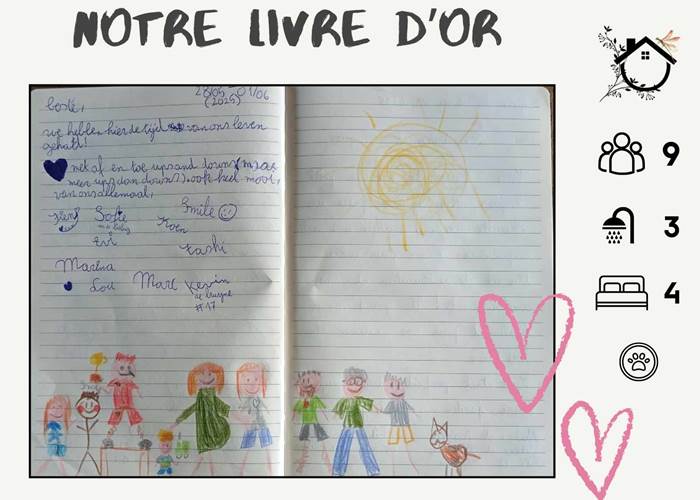 NOTRE LIVRE D'OR
28/05 - 01/06
(2025)
beste,
we hebben hier de tijd van ons leven
gehad!
met af en toe ups and downs (maar
meer ups dan downs) ook heel mooi,
van ons allemaal,
Sofie
Emile
Koen
Evi
Kashi
Marc
Kevin
de Bruyne
#17
Lou
9
3
4